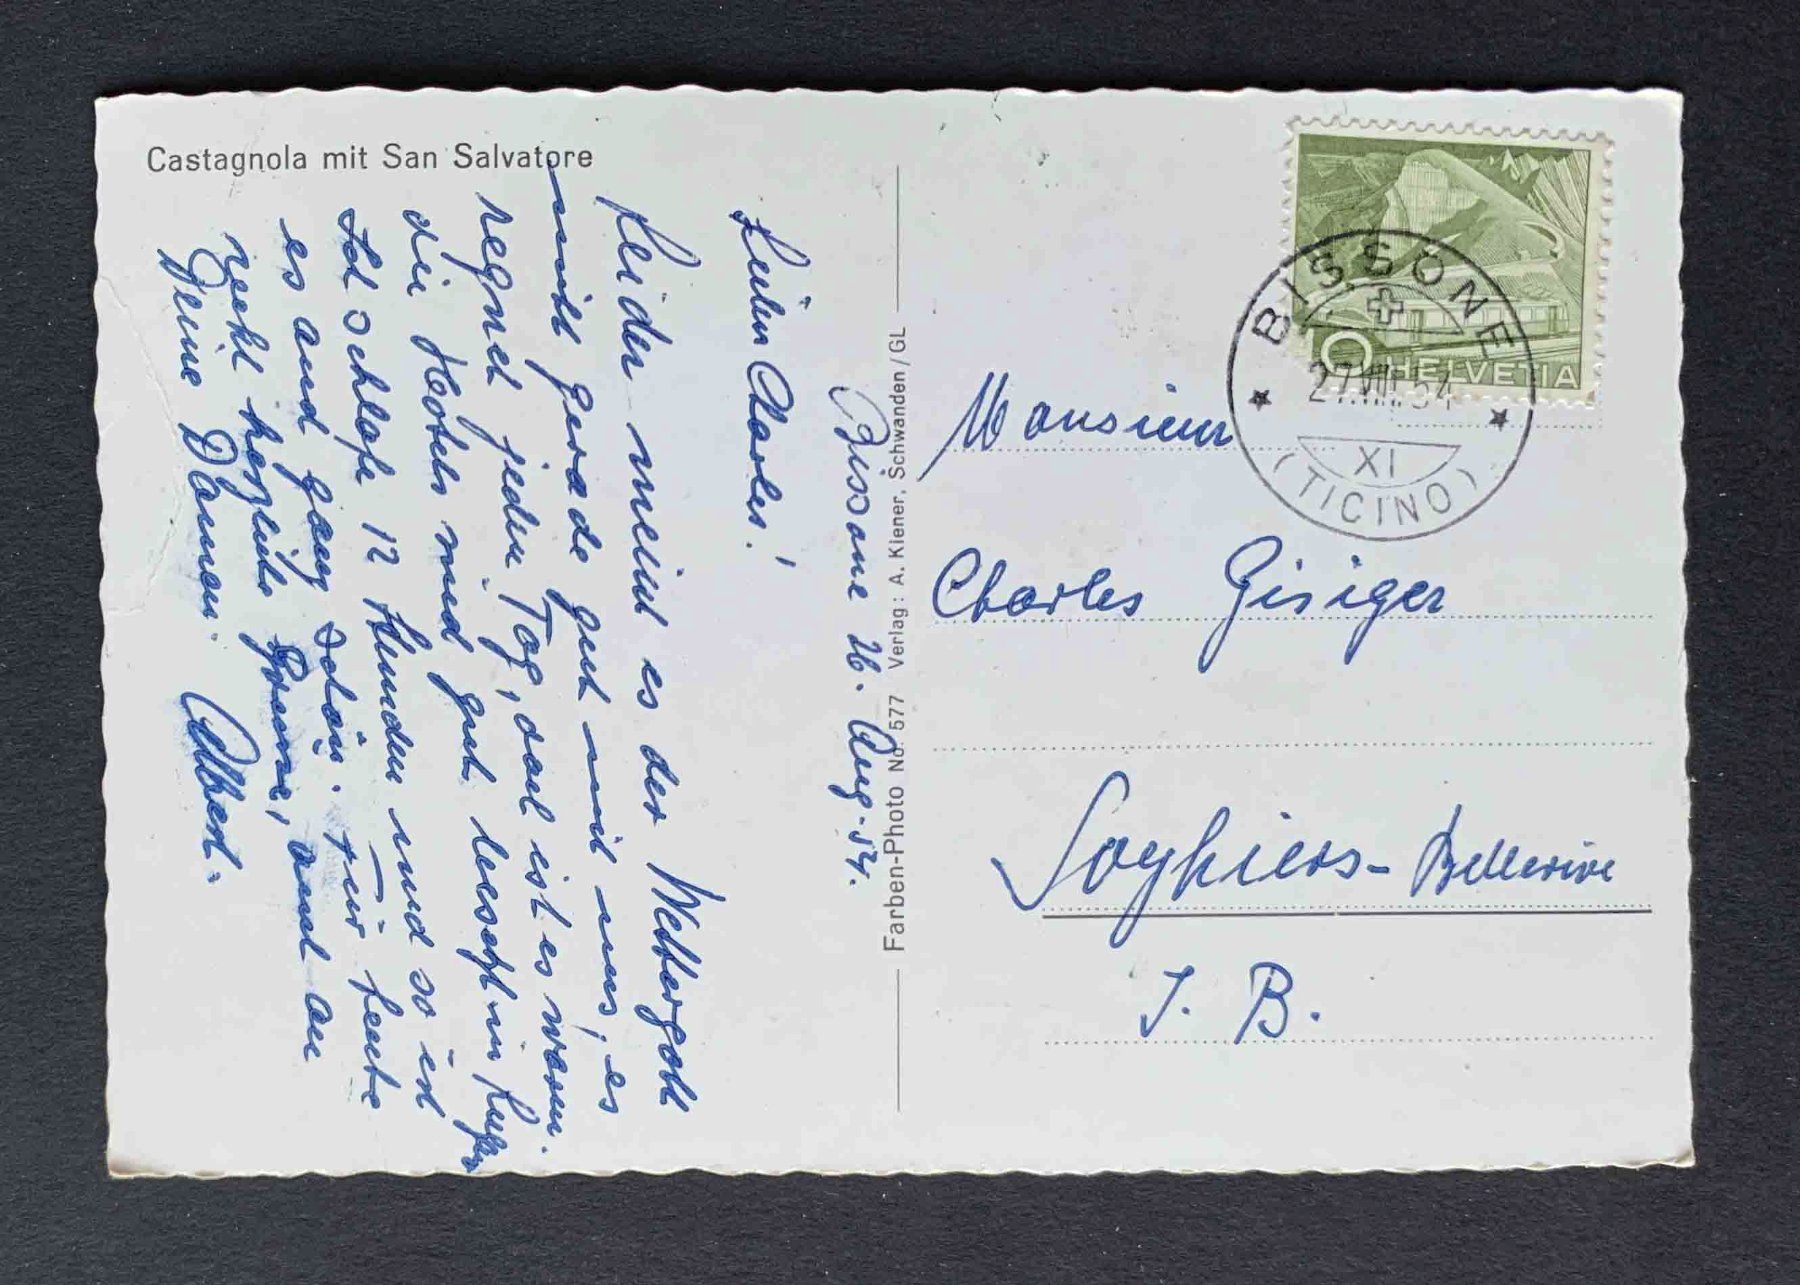 Castagnola mit San Salvatore
Bissone 26. Aug. 54.
Lieber Charles!
Leider meint es der Wettergott
nicht gerade gut mit uns, es
regnet jeden Tag, doch ist es warm.
die Hotels sind gut besetzt in
Ich schlafe 12 Stunden und so ist
es auch ganz schön. Für heute
recht herzliche Grüsse, auch an
Deine Damen. Albert.
Farben-Photo No. 577 Verlag: A. Kiener, Schwanden/GL
HELVETIA
BISSONE
27.VIII.54
XI
(TICINO)
Monsieur
Charles Gisiger
Soyhiers - Bellerive
J. B.